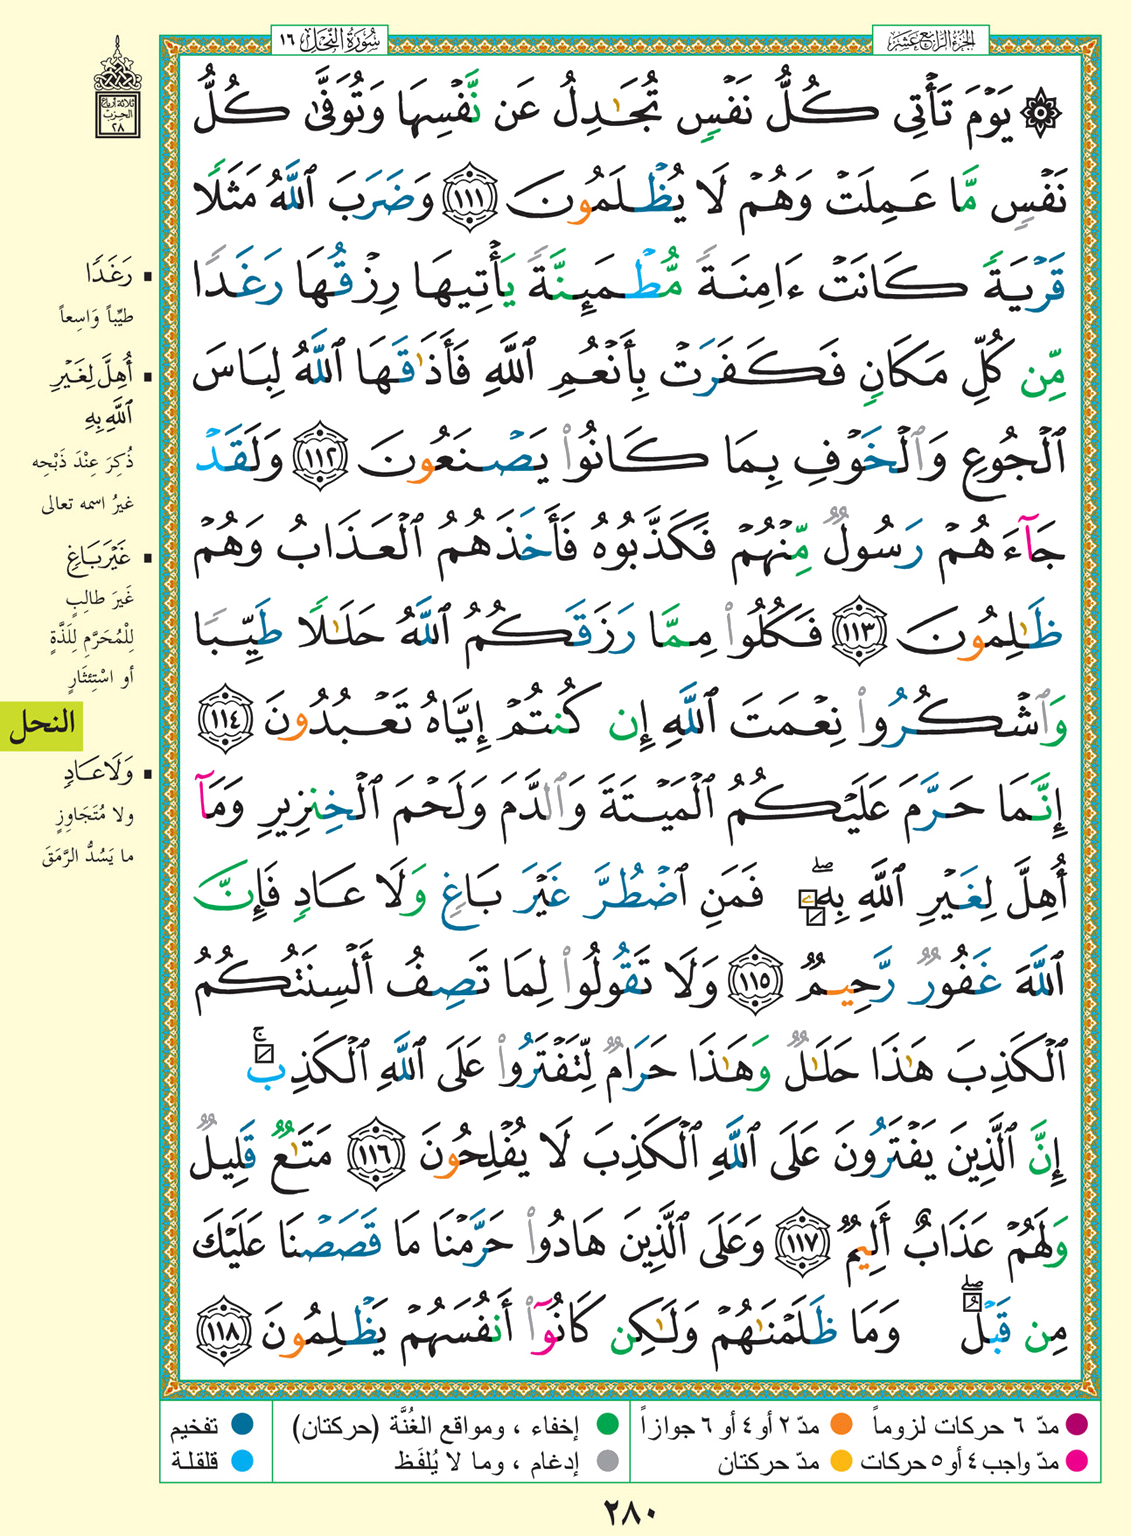 سُورَةُ النَّحْلِ ١٦
الجُزءُ الرَّابِعُ عَشَرَ
ثلاثة أرباع
الحزب
٢٨
۞ يَوْمَ تَأْتِى كُلُّ نَفْسٍ تُجَـٰدِلُ عَن نَّفْسِهَا وَتُوَفَّىٰ كُلُّ
نَفْسٍ مَّا عَمِلَتْ وَهُمْ لَا يُظْلَمُونَ ١١١ وَضَرَبَ ٱللَّهُ مَثَلًا
قَرْيَةً كَانَتْ ءَامِنَةً مُّطْمَئِنَّةً يَأْتِيهَا رِزْقُهَا رَغَدًا
مِّن كُلِّ مَكَانٍ فَكَفَرَتْ بِأَنْعُمِ ٱللَّهِ فَأَذَٰقَهَا ٱللَّهُ لِبَاسَ
ٱلْجُوعِ وَٱلْخَوْفِ بِمَا كَانُوا۟ يَصْنَعُونَ ١١٢ وَلَقَدْ
جَآءَهُمْ رَسُولٌ مِّنْهُمْ فَكَذَّبُوهُ فَأَخَذَهُمُ ٱلْعَذَابُ وَهُمْ
ظَـٰلِمُونَ ١١٣ فَكُلُوا۟ مِمَّا رَزَقَكُمُ ٱللَّهُ حَلَـٰلًا طَيِّبًا
وَٱشْكُرُوا۟ نِعْمَتَ ٱللَّهِ إِن كُنتُمْ إِيَّاهُ تَعْبُدُونَ ١١٤
إِنَّمَا حَرَّمَ عَلَيْكُمُ ٱلْمَيْتَةَ وَٱلدَّمَ وَلَحْمَ ٱلْخِنزِيرِ وَمَآ
أُهِلَّ لِغَيْرِ ٱللَّهِ بِهِۦ ۖ فَمَنِ ٱضْطُرَّ غَيْرَ بَاغٍ وَلَا عَادٍ فَإِنَّ
ٱللَّهَ غَفُورٌ رَّحِيمٌ ١١٥ وَلَا تَقُولُوا۟ لِمَا تَصِفُ أَلْسِنَتُكُمُ
ٱلْكَذِبَ هَـٰذَا حَلَـٰلٌ وَهَـٰذَا حَرَامٌ لِّتَفْتَرُوا۟ عَلَى ٱللَّهِ ٱلْكَذِبَ ۚ
إِنَّ ٱلَّذِينَ يَفْتَرُونَ عَلَى ٱللَّهِ ٱلْكَذِبَ لَا يُفْلِحُونَ ١١٦ مَتَـٰعٌ قَلِيلٌ
وَلَهُمْ عَذَابٌ أَلِيمٌ ١١٧ وَعَلَى ٱلَّذِينَ هَادُوا۟ حَرَّمْنَا مَا قَصَصْنَا عَلَيْكَ
مِن قَبْلُ ۖ وَمَا ظَلَمْنَـٰهُمْ وَلَـٰكِن كَانُوٓا۟ أَنفُسَهُمْ يَظْلِمُونَ ١١٨
▪ رَغَدًا
طيِّباً وَاسِعاً
▪ أُهِلَّ لِغَيْرِ
ٱللَّهِ بِهِ
ذُكِرَ عِنْدَ ذَبْحِه
غيرُ اسمه تعالى
▪ غَيْرَ بَاغٍ
غَيرَ طالِبٍ
لِلْمُحَرَّمِ لِلَذَّةٍ
أو اسْتِئثَارٍ
النحل
▪ وَلَا عَادٍ
ولا مُتَجَاوِزٍ
ما يَسُدُّ الرَّمَقَ
مدّ ٦ حركات لزوماً
مدّ ٢ أو ٤ أو ٦ جوازاً
إخفاء ، ومواقع الغُنَّة (حركتان)
تفخيم
مدّ واجب ٤ أو ٥ حركات
مدّ حركتان
إدغام ، وما لا يُلفَظ
قلقلة
٢٨٠